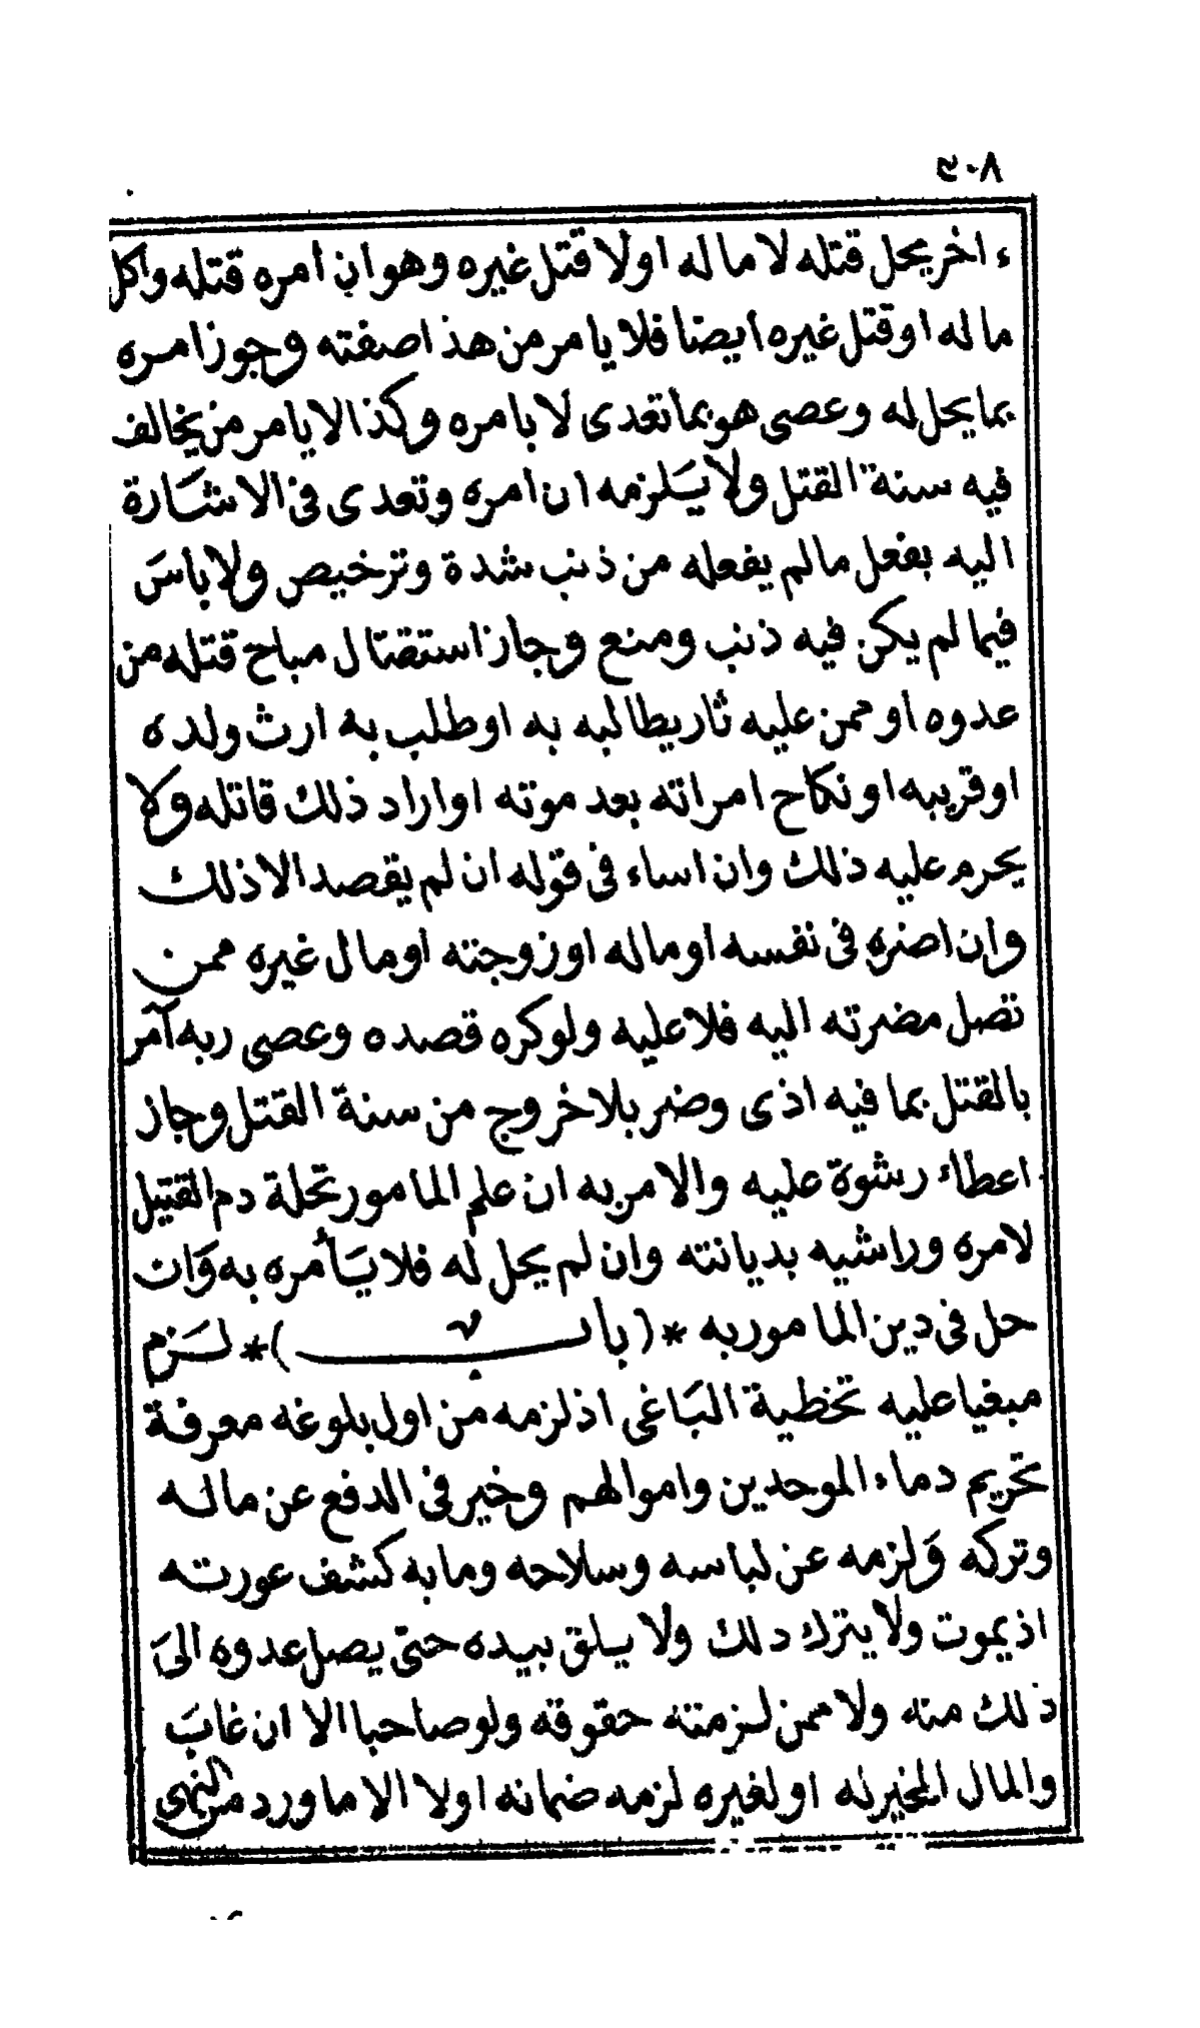 ٥٠٨
ء اخر يحل قتله لا ماله اولا قتل غيره وهو ان أمره قتله واكل
ماله او قتل غيره ايضا فلا يامر من هذا صفته وجوز امره
بما يحل له وعصى هو بما تعدى لا بامره وكذا لا يامر من يخالف
فيه سنة القتل ولا يَلزمه ان امره وتعدى فى الاشارة
اليه بفعل مالم يفعله من ذنب شدة وترخيص ولا باسَ
فيما لم يكن فيه ذنب ومنع وجاز استقتال مباح قتله من
عدوه او ممن عليه ثار يطالبه به او طلب به ارث ولده
او قريبه او نكاح امراته بعد موته او اراد ذلك قاتله ولا
يحرم عليه ذلك وان اساء فى قوله ان لم يقصد الا ذلك
وان اضره فى نفسه او ماله او زوجته او مال غيره ممن
تصل مضرته اليه فلا عليه ولو كره قصده وعصى ربه آمر
بالقتل بما فيه اذى وضر بلا خروج من سنة القتل وجاز
اعطاء رشوة عليه والامر به ان علم المامور تحلة دم القتيل
لامره وراشيه بديانته وان لم يحل له فلا يَأمره به وَان
حل فى دين المامور به *(باب)* لَزم
مبغيا عليه تخطية البَاغى اذ لزمه من اول بلوغه معرفة
تحريم دماء الموحدين واموالهم وخير فى الدفع عن ماله
وتركه وَلزمه عن لباسه وسلاحه وما به كشف عورته
اذ يموت ولا يترك ذلك ولا يلق بيده حتى يصل عدوه الىَ
ذلك منه ولا ممن لزمته حقوقه ولو صاحبا الا ان غابَ
والمال المخير له او لغيره لزمه ضمانه اولا الا ما ورد من النهى